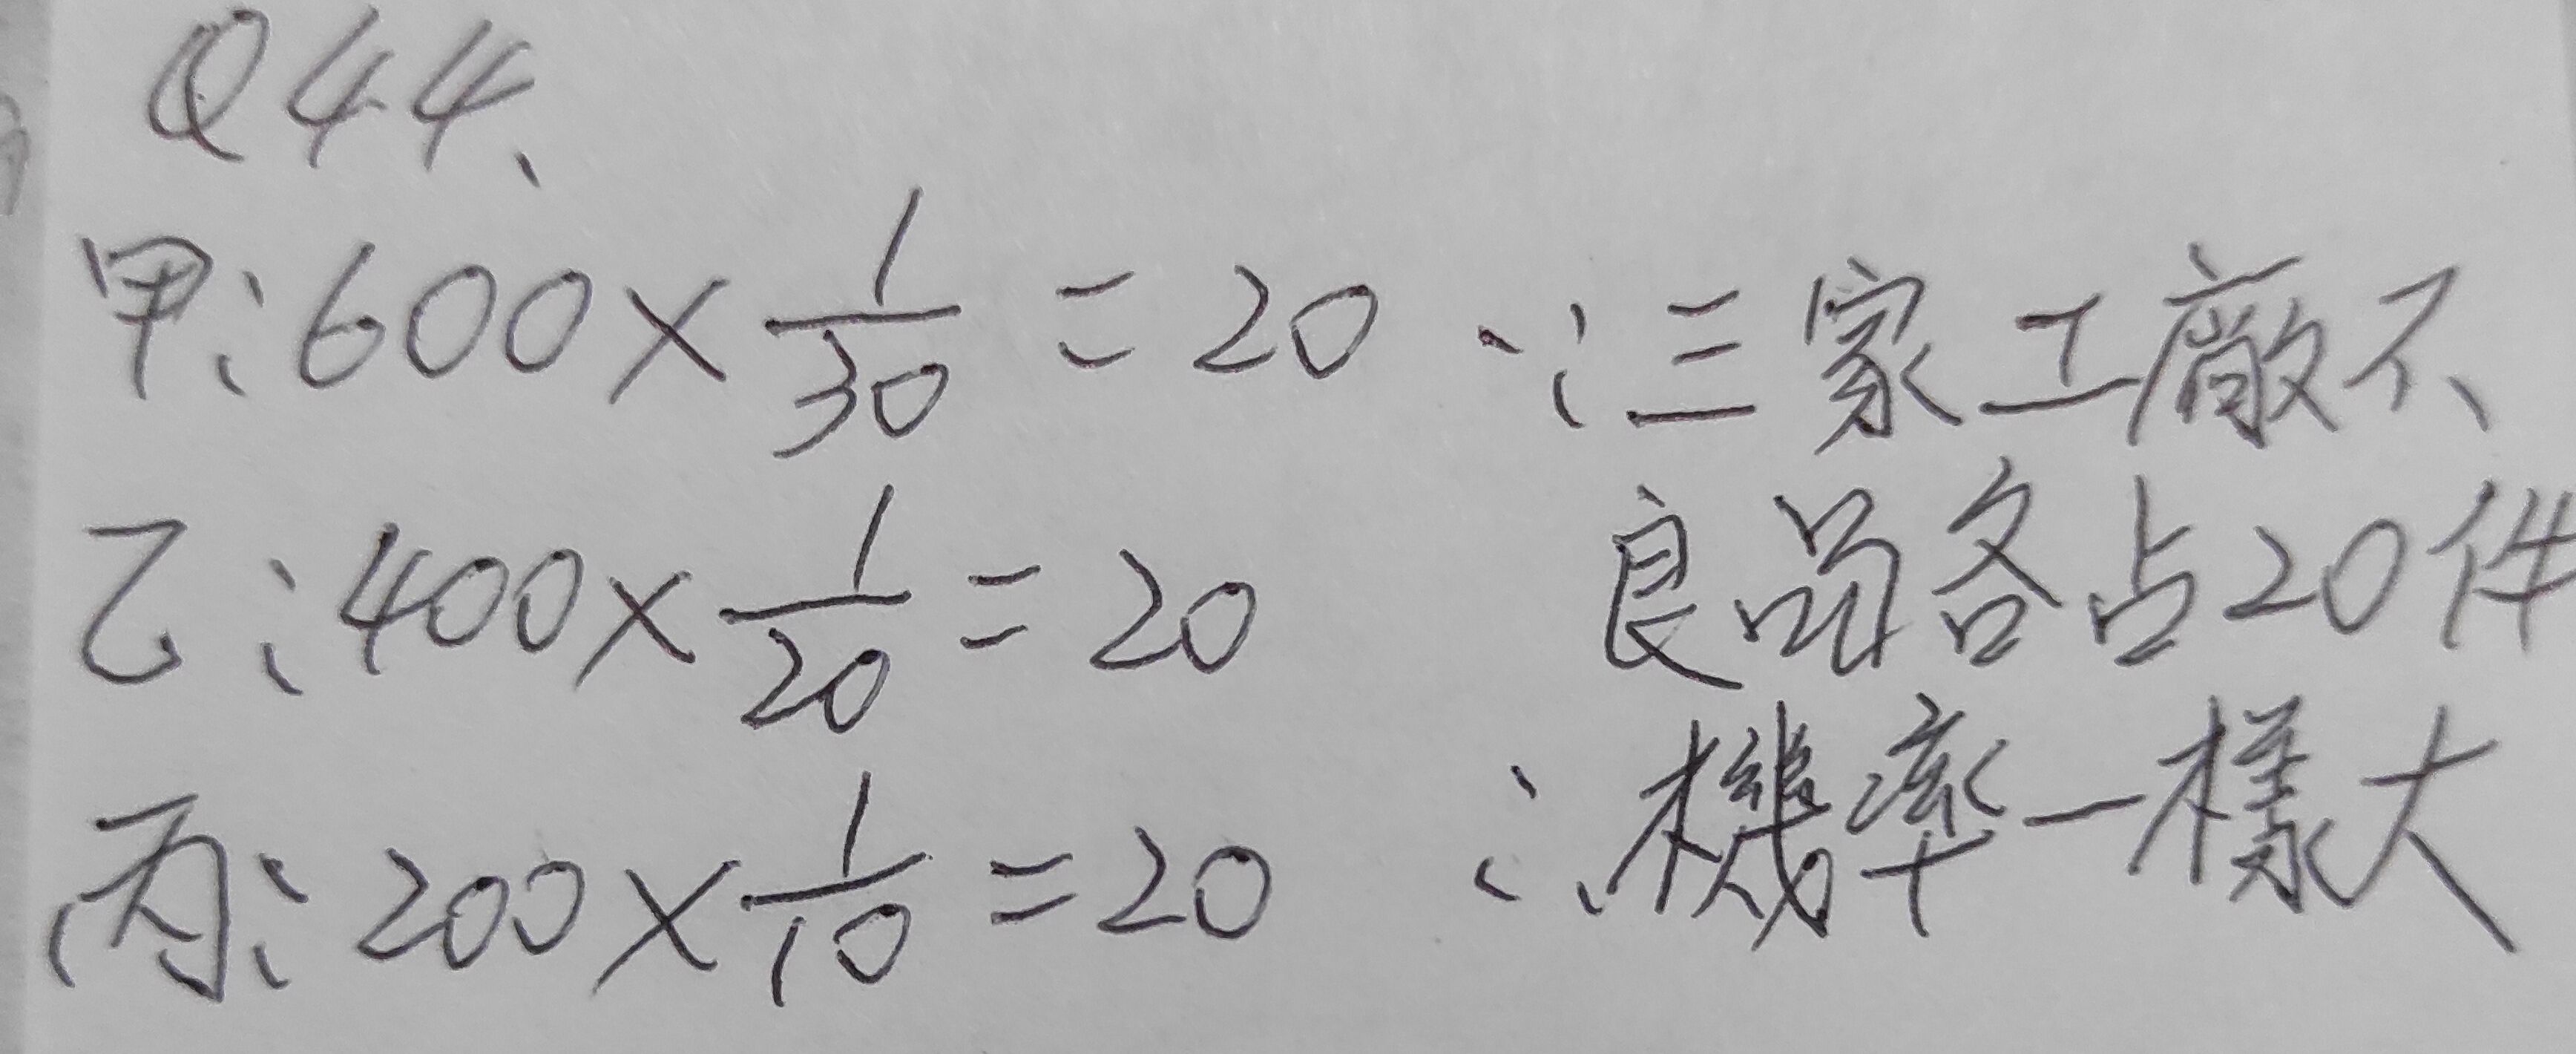 Q44、
甲:600×1/30=20 ∵三家工廠不
乙:400×1/20=20 良品各占20件
丙:200×1/10=20 ∴機率一樣大